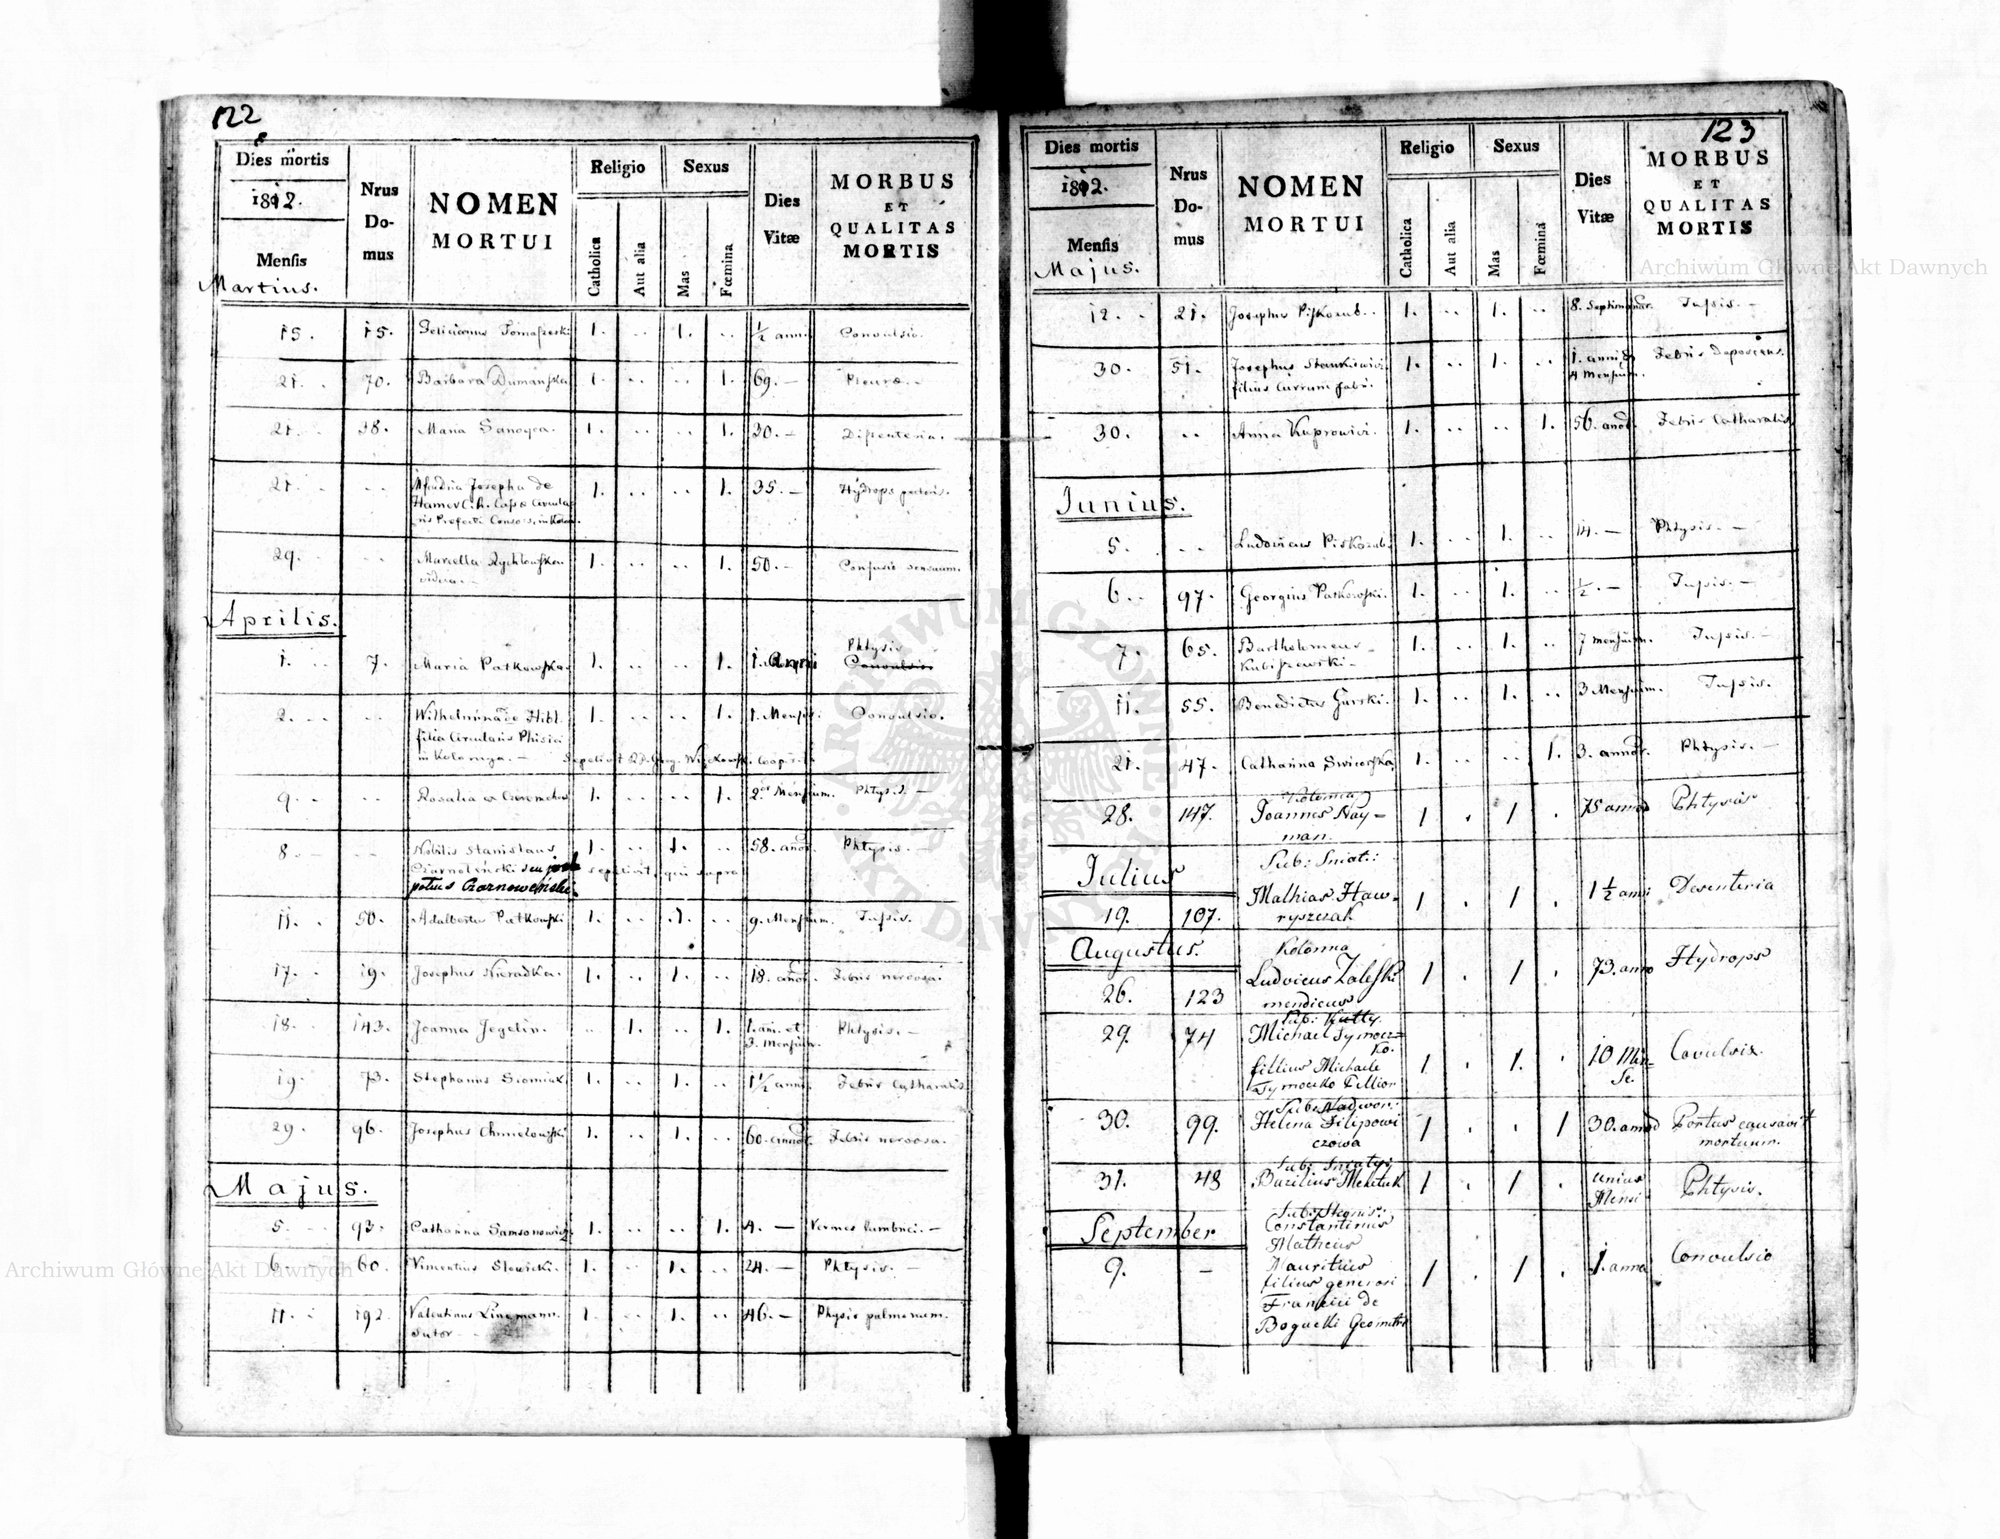 122
Dies mortis
1812.
Mensis
Martius.
Nrus
Do-
mus
NOMEN
MORTUI
Religio
Catholica
Aut alia
Sexus
Mas
Fœmina
Dies
Vitæ
MORBUS
ET
QUALITAS
MORTIS
15. 15. 1. .. 1. .. ½ anni Convulsio.
21. 70. Barbara Dumanska 1. .. .. 1. 69. — Pleura. -
21. 38. Maria Sanoyca. 1. .. .. 1. 30. — Dissenteria.
21. - .. Josepha de 1. .. .. 1. 35. — Hydrops pectoris.
29. - .. Marcella Rychlowska 1. .. .. 1. 50. — Confusio sensuum.
vidua. -
Aprilis.
Phtysis
1. .. 7. Maria Patkowska. 1. .. .. 1. 1. Anni Convulsio
2. - .. Wilhelmina de Hibl 1. .. .. 1. 1. Mensis. Convulsio.
filia Circularis Phisici
in Kolomya. —
9. - .. Rosalia 1. .. .. 1. 2. Mensium. Phtysis. —
8. - .. Nobilis Stanislaus 1. .. 1. .. 58. Phtysis. —
sepelivit, qui supra
potius Czarnoweński.
11. . 50. Adalbertus Patkowski 1. .. 1. .. 9. Mensium. Tussis.
17. . 19. Josephus Nieradka. 1. .. 1. .. 18. Febris nervosa.
18. . 143. Joanna Jegelin. .. 1. .. 1. 1. an. et Phtysis. —
3. Mensium.
19. . 73. Stephanus 1. .. 1. .. 1½ anni. Febris Catharalis.
29. 96. Josephus Chmielowski 1. .. 1. .. 60. Febris nervosa.
Majus.
5. - 93. Catharina Samsonowicz. 1. .. .. 1. 4. — Vermes lumbrici. —
6. - 60. Vincentius Slowicki. 1. .. 1. .. 24. — Phtysis. —
11. - 192. Valentinus Linemann. 1. .. 1. .. 46. — Physis pulmonum.
Sutor -
123
Dies mortis
1812.
Mensis
Majus.
Nrus
Do-
mus
NOMEN
MORTUI
Religio
Catholica
Aut alia
Sexus
Mas
Fœmina
Dies
Vitæ
MORBUS
ET
QUALITAS
MORTIS
12. . 21. Josephus Piskozub. 1. .. 1. .. 8. Septimanar. Tussis. —
30. 51. Josephus Stankiewicz 1. .. 1. .. 1. anni & Febris
filius Currum fabri. 4 Mensium.
30. .. Anna Kuprowicz. 1. .. .. 1. 56. Febris Catharalis.
Junius.
5. .. Ludovicus Piskozub. 1. .. 1. .. 14. — Phtysis. —
6. . 97. Georgius Patkowski. 1. .. 1. .. ½. — Tussis. —
7. 65. Bartholomeus 1. .. 1. .. 7 mensium. Tussis. —
Kubiszewski -
11. 55. Benedictus Gurski. 1. .. 1. .. 3 Mensium. Tussis.
21. 47. Catharina 1. .. .. 1. 3. annor. Phtysis. —
Kolonna
28. 147. Joannes Nay= 1 . 1 . 75 Phtysis
man.
Julius
Sub: Sniat:
Mathias Haw= 1 . 1 . 1½ anni Desenteria
19. 107. ryszczak
Augustus.
Kolonna
Ludovicus Zaleski 1 . 1 . 73. anno Hydrops
26. 123 mendicus
Sub: Kutty.
29. 74 Michael Symocz=
ko.
fillius Michaele 1 . 1. . 10 Men= Covulsix.
Symoczko Fillior se.
Sub: Nadwor:
30. 99. Helena Filipowi 1 . . 1 30. Portus causavit
czowa mortuum.
Sub: Sniatyn
31. 48 Bazilius 1 . 1 . unius Phtysis.
Mensi
September
Constantinus
Matheus
9. — Mauritius 1 . 1 . 1. anno Convulsio
filius generosi
Francisi de
Bogucki Geometri
Archiwum Główne Akt Dawnych
Archiwum Główne Akt Dawnych
ARCHIWUM GŁÓWNE · AKT DAWNYCH ·